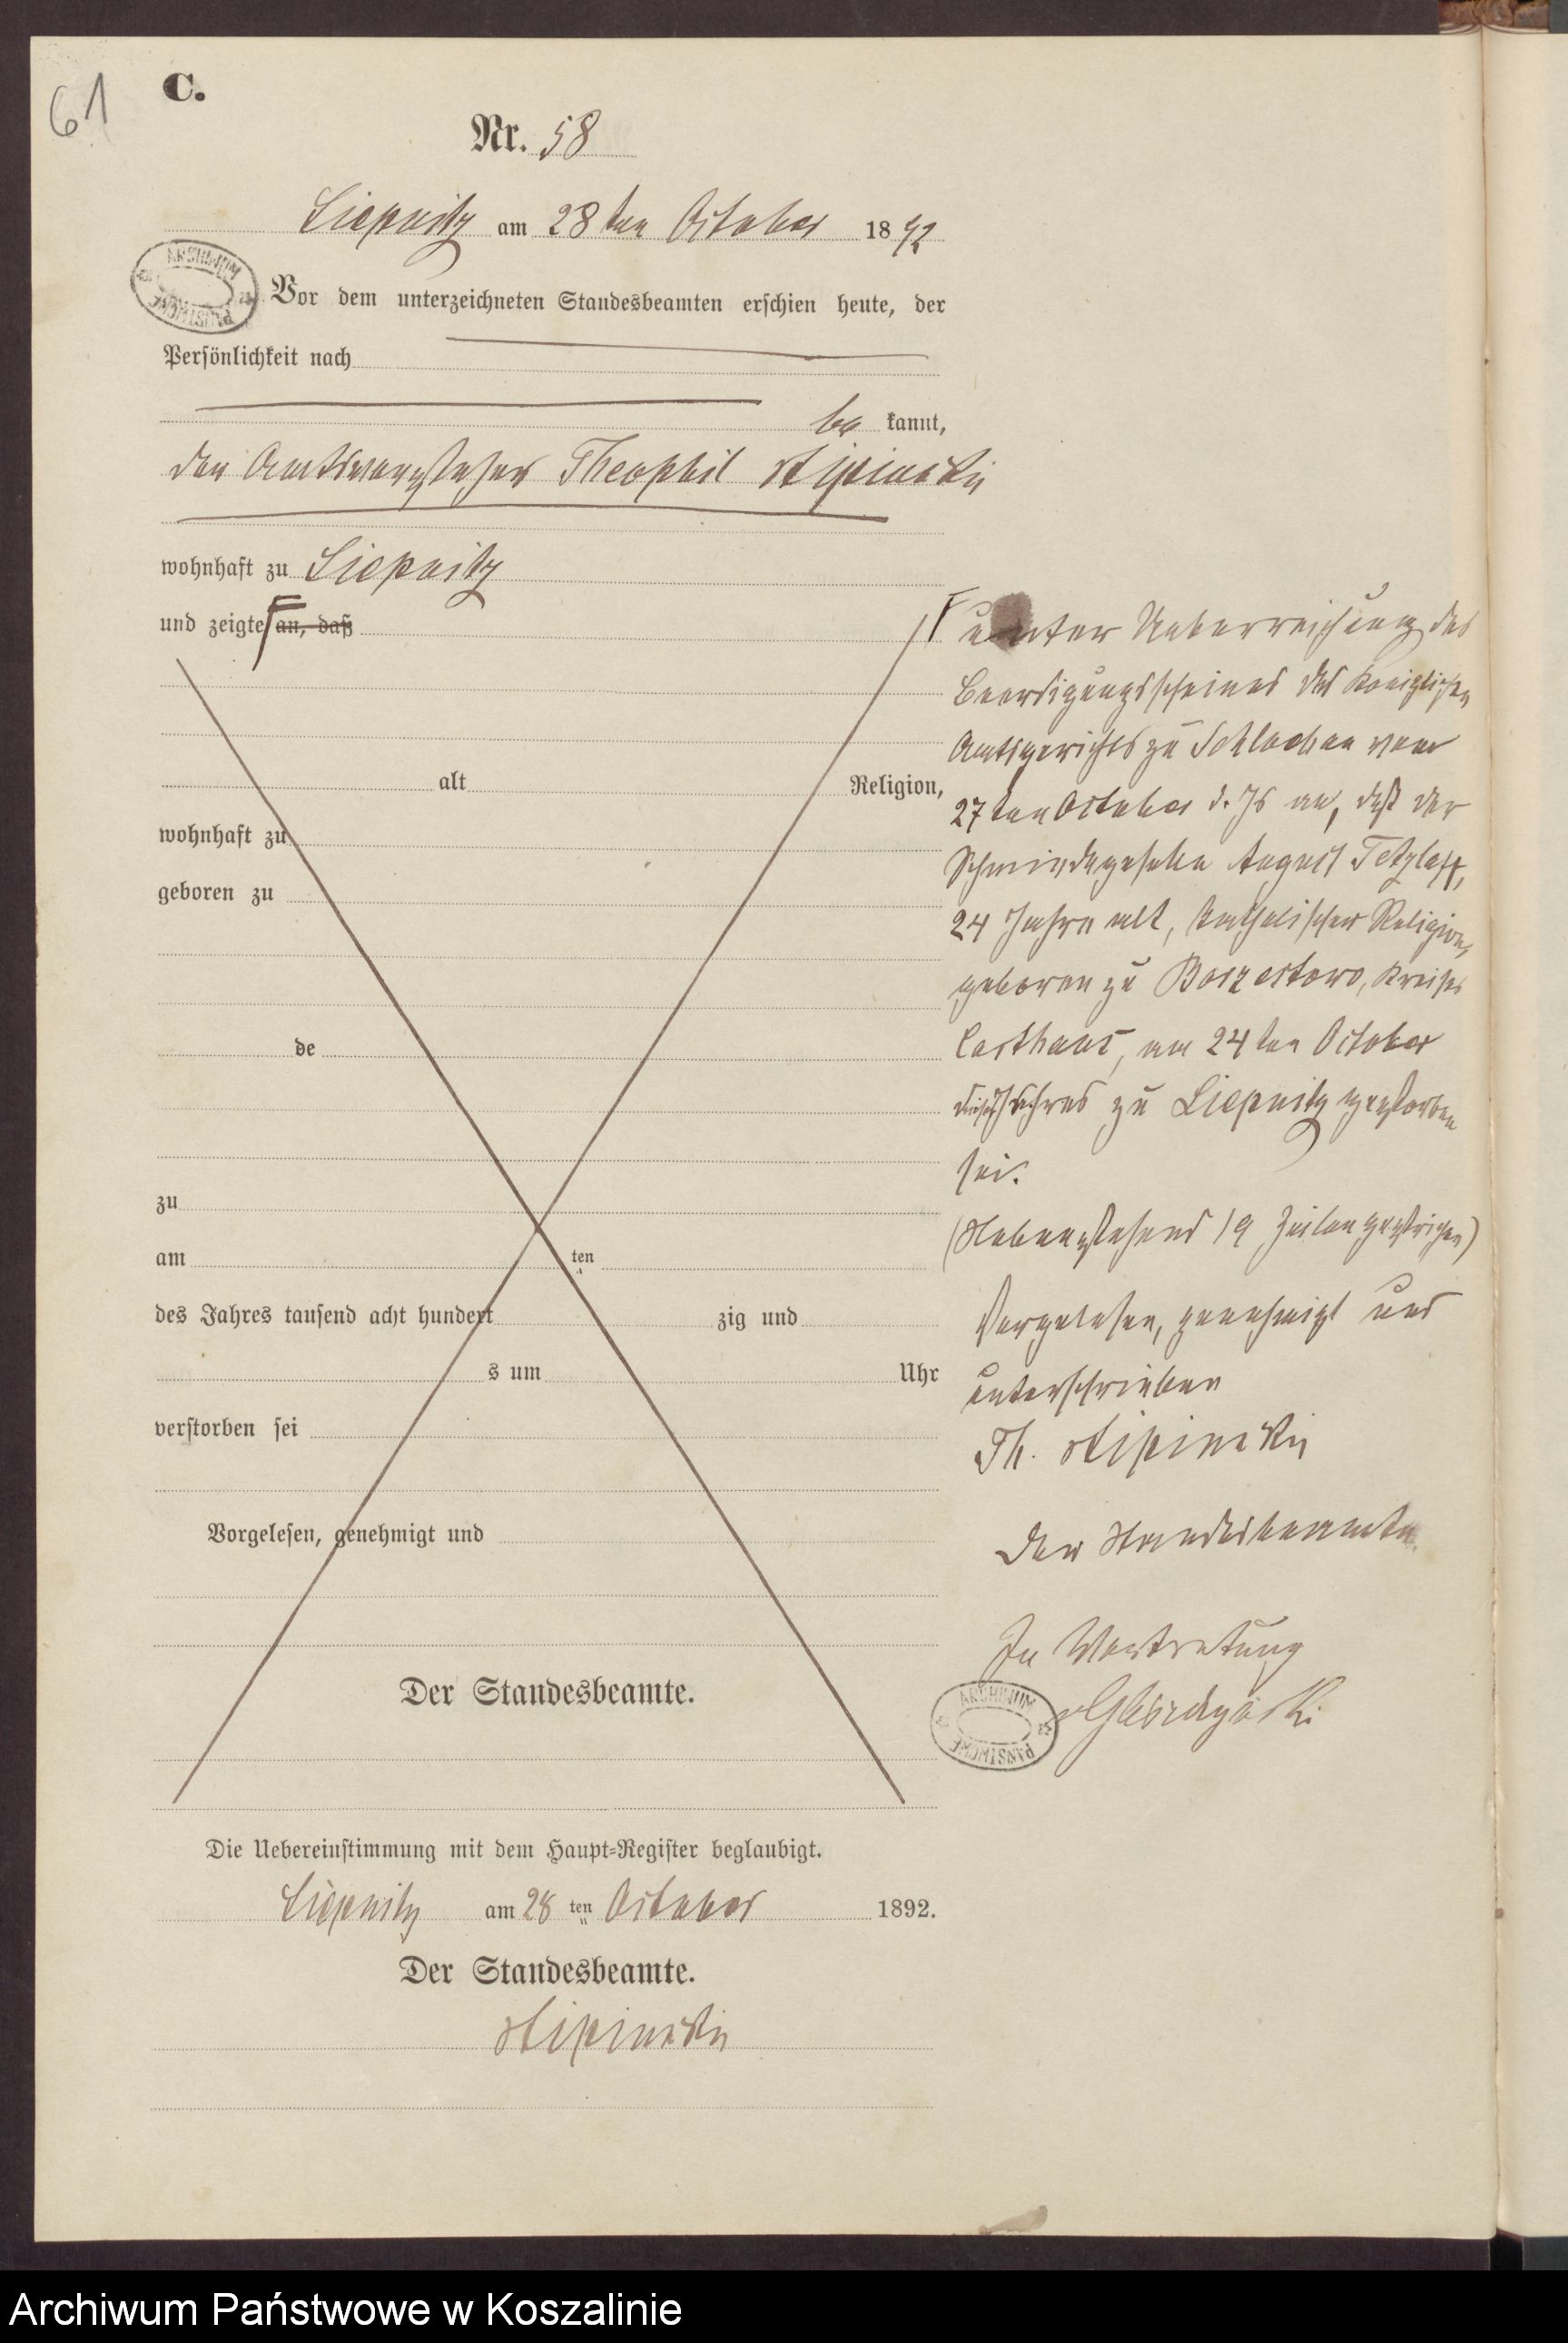 61
C.
Nr. 58
Liepnitz am 28ten October 1892
Vor dem unterzeichneten Standesbeamten erschien heute, der
Persönlichkeit nach
be kannt,
der Amtsvorsteher Theophil
wohnhaft zu Liepnitz
und zeigte an, daß
alt Religion,
wohnhaft zu
geboren zu
de
zu
am ten
des Jahres tausend acht hundert zig und
s um Uhr
verstorben sei
Vorgelesen, genehmigt und
Der Standesbeamte.
unter Ueberreichung des
Beerdigungsscheines des Königlichen
Amtsgerichts zu Schlochau vom
27ten October d. Js an, daß der
Schmiedegeselle August Tetzlaff,
24 Jahre alt, katholischer Religion,
geboren zu Borzestowo, Kreises
Carthaus, am 24ten October
dieses Jahres zu Liepnitz gestorben
sei.
(Nebenstehend 19 Zeilen gestrichen)
Vorgelesen, genehmigt und
unterschrieben
Th.
Der Standesbeamte
In Vertretung
ARCHIWUM PAŃSTWOWE
Die Uebereinstimmung mit dem Haupt=Register beglaubigt.
Liepnitz am 28 ten October 1892.
Der Standesbeamte.
Archiwum Państwowe w Koszalinie